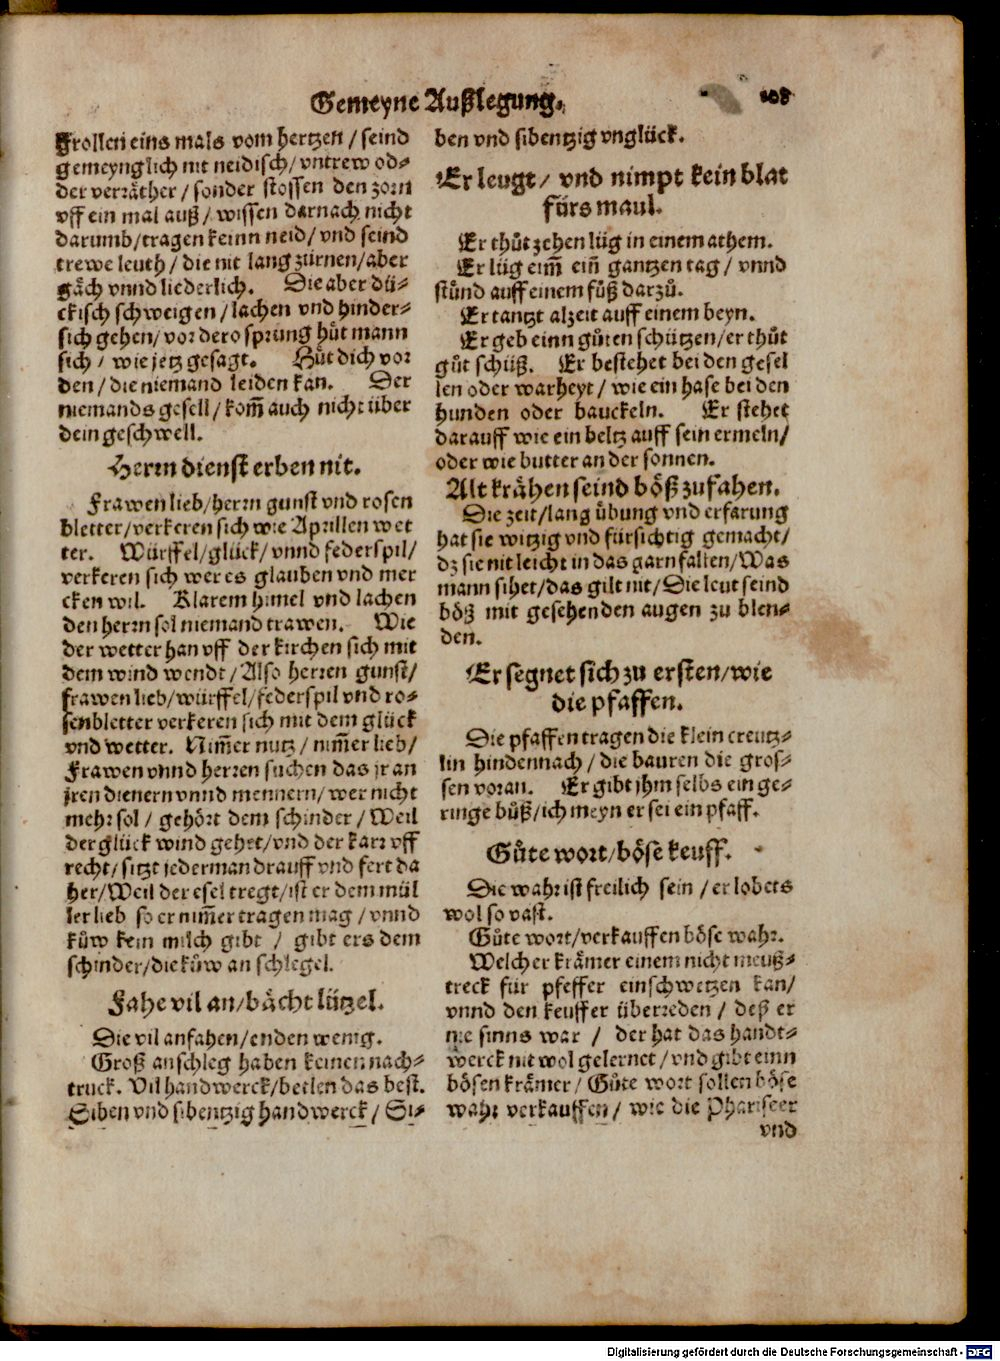 Gemeyne Außlegung. 108
Frollen eins mals vom hertzen / seind
gemeynglich nit neidisch / vntrew od-
der verräther / sonder stossen den zorn
vff ein mal auß / wissen darnach nicht
darumb / tragen keinn neid / vnd seind
trewe leuth / die nit lang zürnen / aber
gäch vnnd liederlich. Die aber dü-
ckisch schweigen / lachen vnd hinder-
sich gehen / vor dero sprung hüt mann
sich / wie jetz gesagt. Hüt dich vor
den / die niemand leiden kan. Der
niemands gesell / kom̃ auch nicht über
dein geschwell.
Herrn dienst erben nit.
Frawen lieb / herrn gunst vnd rosen
bletter / verkeren sich wie Aprillen wet
ter. Würffel / glück / vnnd federspil /
verkeren sich wer es glauben vnd mer
cken wil. Klarem himel vnd lachen
den herrn sol niemand trawen. Wie
der wetter han vff der kirchen sich mit
dem wind wendt / Also herren gunst /
frawen lieb / würffel / federspil vnd ro-
senbletter verkeren sich mit dem glück
vnd wetter. Nim̃er nutz / nim̃er lieb /
Frawen vnnd herren suchen das jr an
jren dienern vnnd mennern / wer nicht
mehr sol / gehört dem schinder / Weil
der glück wind gehet / vnd der karr vff
recht / sitzt jederman drauff vnd fert da
her / Weil der esel tregt / ist er dem mül
ler lieb so er nim̃er tragen mag / vnnd
küw kein milch gibt / gibt ers dem
schinder / die küw an schlegel.
Fahe vil an / bächt lützel.
Die vil anfahen / enden wenig.
Groß anschleg haben keinen nach-
truck. Vil handwerck / betlen das best.
Siben vnd sibentzig handwerck / Si-
ben vnd sibentzig vnglück.
Er leugt / vnd nimpt kein blat
fürs maul.
Er thůt zehen lüg in einem athem.
Er lüg eim̃ ein̄ gantzen tag / vnnd
stünd auff einem fůß darzů.
Er tantzt alzeit auff einem beyn.
Er geb einn gůten schützen / er thůt
gůt schüß. Er bestehet bei den gesel
len oder warheyt / wie ein hase bei den
hunden oder bauckeln. Er stehet
darauff wie ein beltz auff sein ermeln /
oder wie butter an der sonnen.
Alt krähen seind böß zufahen.
Die zeit / lang übung vnd erfarung
hat sie witzig vnd fürsichtig gemacht /
dz sie nit leicht in das garn fallen / Was
mann sihet / das gilt nit / Die leut seind
böß mit gesehenden augen zu blen-
den.
Er segnet sich zu ersten / wie
die pfaffen.
Die pfaffen tragen die klein creutz-
lin hindennach / die bauren die gros-
sen voran. Er gibt jhm selbs ein ge-
ringe bůß / ich meyn er sei ein pfaff.
Gůte wort / böse keuff.
Die wahr ist freilich fein / er lobets
wol so vast.
Gůte wort / verkauffen böse wahr.
Welcher krämer einem nicht meuß-
treck für pfeffer einschwetzen kan /
vnnd den keuffer überreden / deß er
nie sinns war / der hat das handt-
werck nit wol gelernet / vnd gibt einn
bösen krämer / Gůte wort sollen böse
wahr verkauffen / wie die Phariseer
vnd
Digitalisierung gefördert durch die Deutsche Forschungsgemeinschaft - DFG